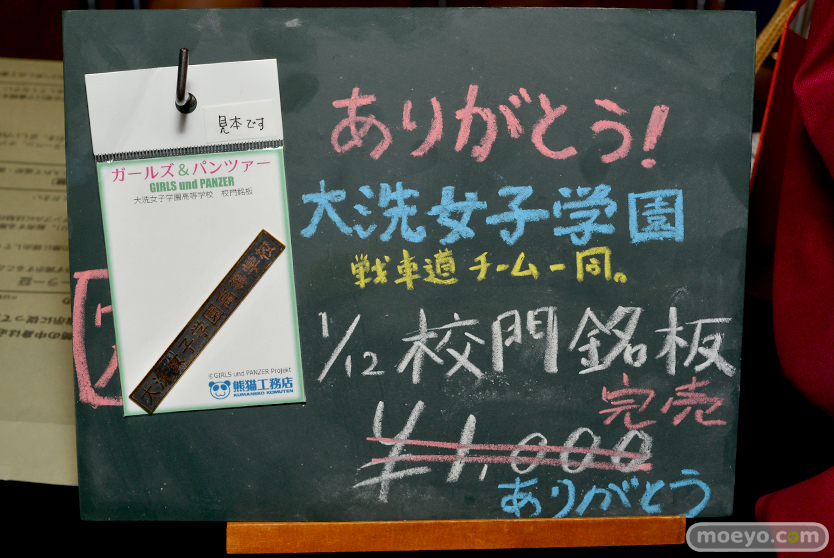 見本です
ガールズ&パンツァー
GIRLS und PANZER
大洗女子学園高等学校 校門銘板
大洗女子学園高等学校
©GIRLS und PANZER Projekt
熊猫工務店
KUMANEKO KOMUTEN
ありがとう!
大洗女子学園
戦車道チーム一同。
1/12 校門銘板
完売
¥1,000
ありがとう
moeyo.com